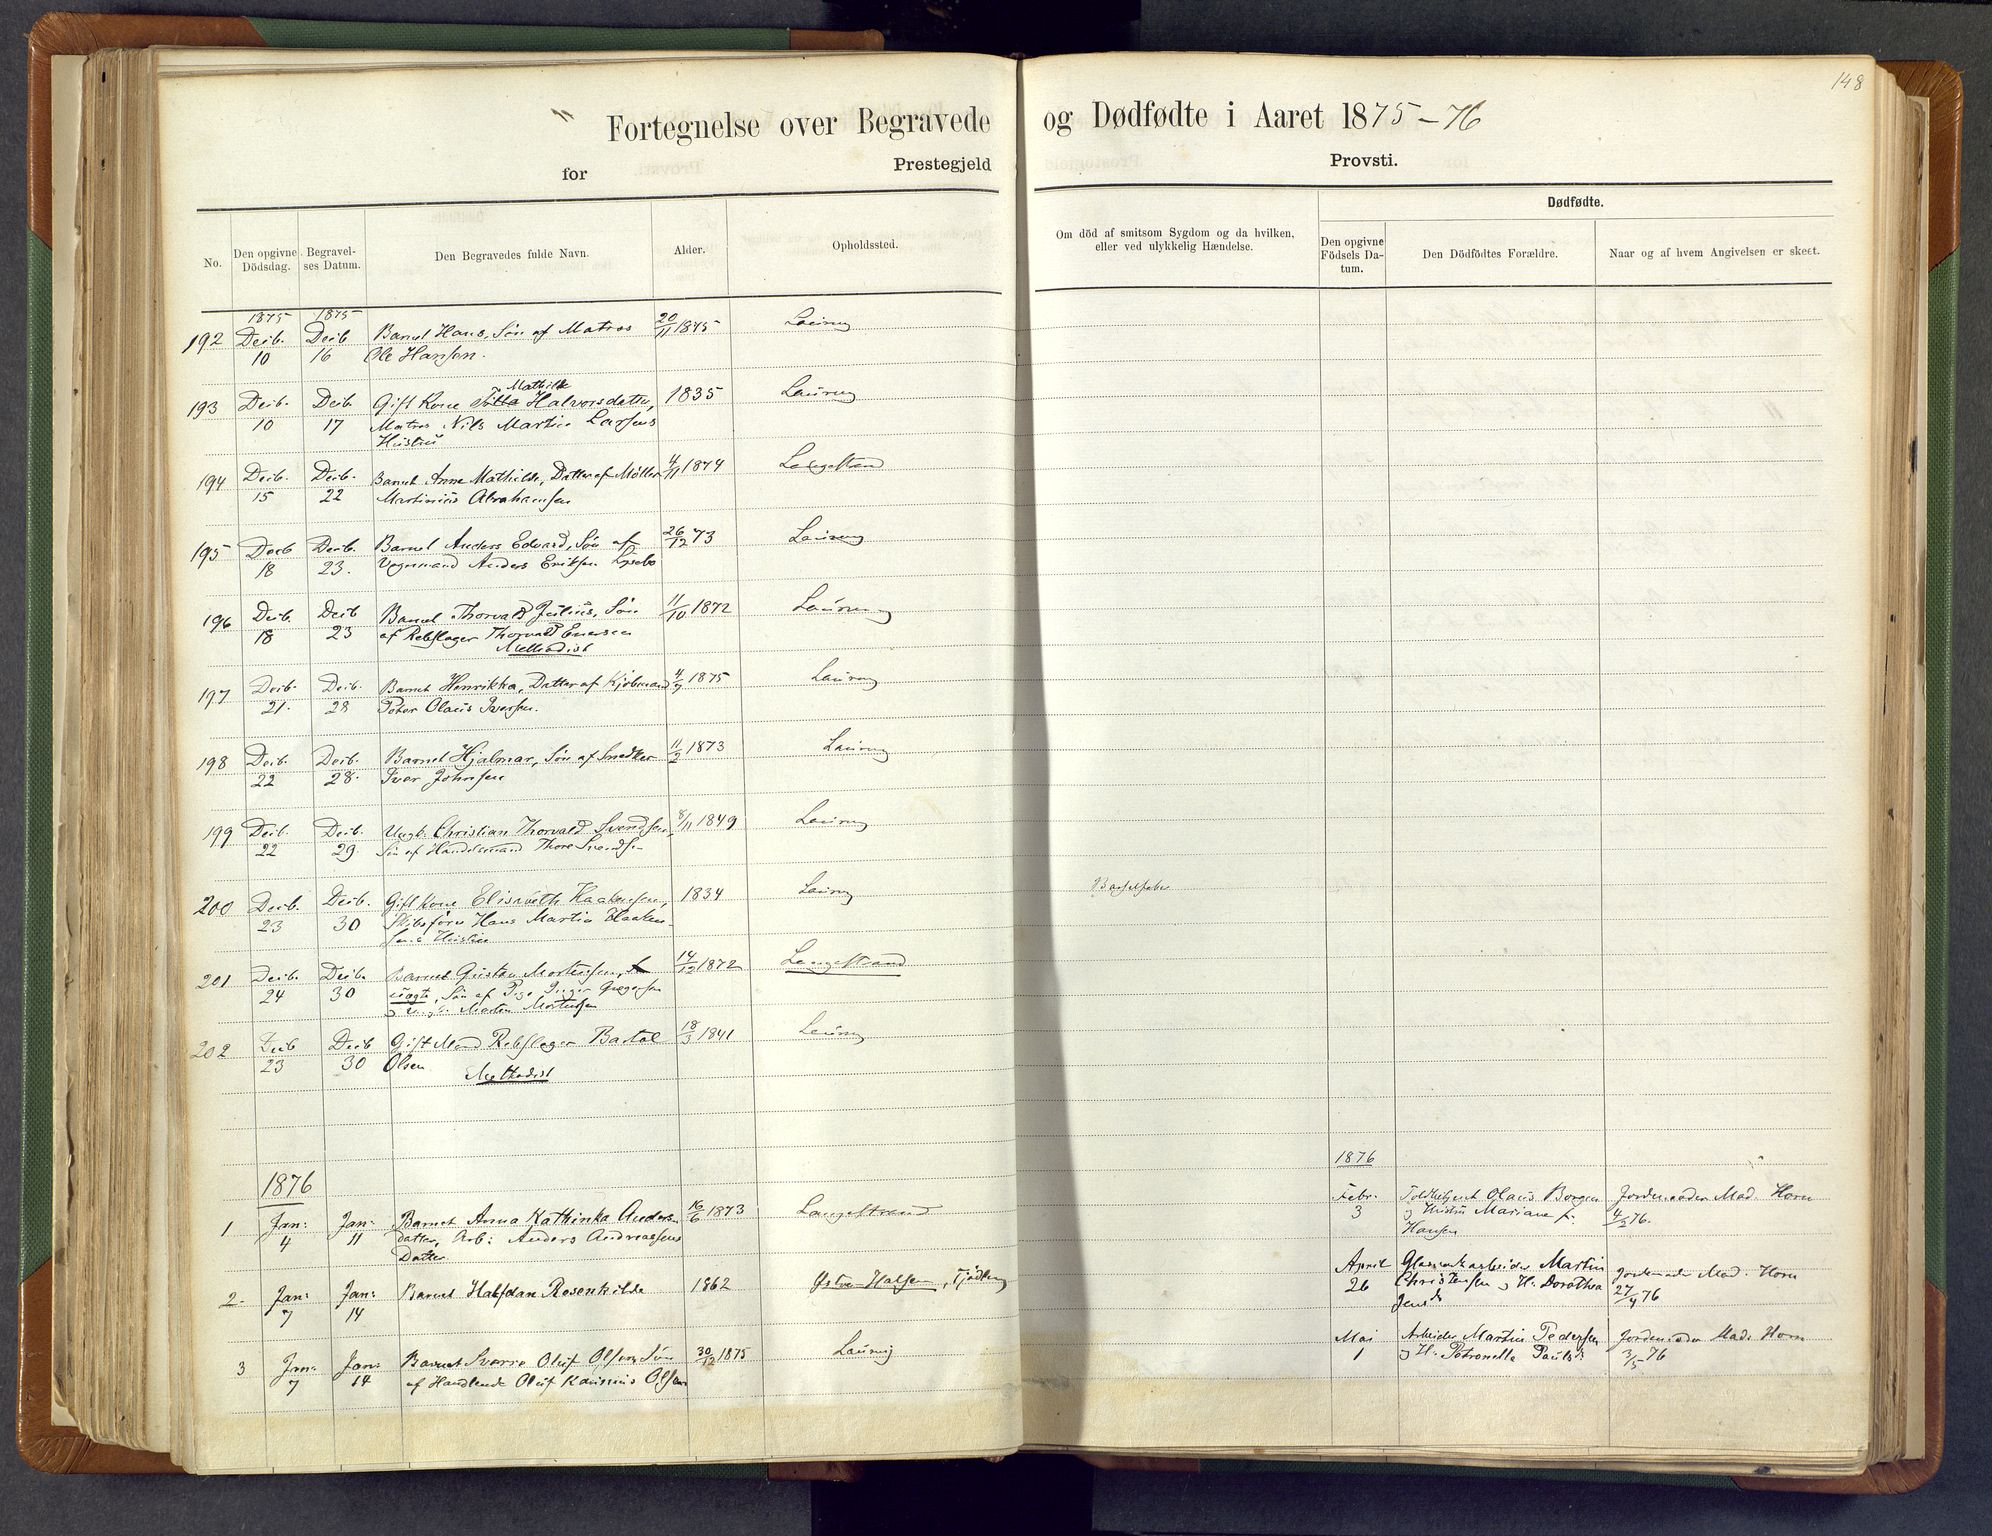 148
Fortegnelse over Begravede og Dødfødte i Aaret 1875-76
for Prestegjeld Provsti.
No.
Den opgivne Dödsdag.
Begravelses Datum.
Den Begravedes fulde Navn.
Alder.
Opholdssted.
Om död af smitsom Sygdom og da hvilken, eller ved ulykkelig Hændelse.
Dødfødte.
Den opgivne Födsels Datum.
Den Dödfödtes Forældre.
Naar og af hvem Angivelsen er skeet.
1875 1875
192 Decb. Decb Barnet Hans, Søn af Matros 20/11 1875 Laurvig
10 16 Ole Hansen.
Mathilde
193 Decb. Decb. Gift Kone Halvorsdatter, 1835 Laurvig
10 17 Matros Nils Martin Larsens
Hustru
194 Decb. Decb. Barnet Anne Mathilde, Datter af Møller 4/11 1874 Langestrand
15 22 Martinius Abrahamsen
195 Decb Decb. Barnet Anders Edvard, Søn af 26/12 73 Laurvig
18 23. Vognmand Anders Eriksen Lysebo
196 Decb. Decb Barnet Thorvald Julius, Søn 11/10 1872 Laurvig
18 23 af Rebslager Thorvald Enersen
Methodist
197 Decb. Decb. Barnet Henrikka, Datter af Kjøbmand 4/7 1875 Laurvig
21. 28 Peter Olaus Iversen.
198 Decb. Decb. Barnet Hjalmar, Søn af Snedker 11/2 1873 Laurvig
22 28. Iver Johnsen
199 Decb. Decb. Ungk. Christian Thorvald Svendsen, 8/11 1849 Laurvig
22 29. Søn af Handelsmand Thore Svendsen
200 Decb. Decb. Gift Kone Elisabeth Haakensen, 1834 Laurvig Barselfeber
23 30 Skibsfører Hans Martin Haaken-
sens Hustru
201 Decb. Decb. Barnet Gustav Mortensen, 14/12 1872 Langestrand
24 30 uægte, Søn af Pige Inger Gregersen
og Morten Mortensen
202 Decb Decb Gift Mand Rebslager Bartol 18/3 1841 Laurvig
23 30 Olsen
Methodist
1876
1 Jan: Jan: Barnet Anna Kathinka Anders- 16/6 1873 Langestrand
4 11 datter, Arb: Anders Andreassens
Datter
2 Jan: Jan: Barnet Halfdan Rosenkilde 1862 Østre Halsen, Tjødling
7 14
3 Jan: Jan: Barnet Sverre Oluf Olsen, Søn 30/12 1875 Laurvig
7 14 af Handlende Oluf Rasmus Olsen
1876
Febr. Toldbetjent Olaus Borgen Jordemoder Mad. Horn
3 og Hustru Mariane f. 4/2 76.
Hansen
April Glasværkarbeider Martin
26 Christensen og H. Dorothea Jordemoder Mad. Horn
Jensd. 27/4 76
Mai Arbeider Martin Pedersen Jordemoder Mad. Horn
1 og H. Petronelle Paulsd. 3/5 76